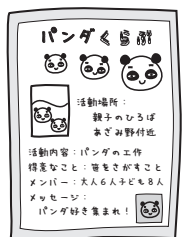 パンダくらぶ
活動場所：
親子のひろば
あざみ野付近
活動内容：パンダの工作
得意なこと：笹をさがすこと
メンバー：大人6人子ども8人
メッセージ：
パンダ好き集まれ！